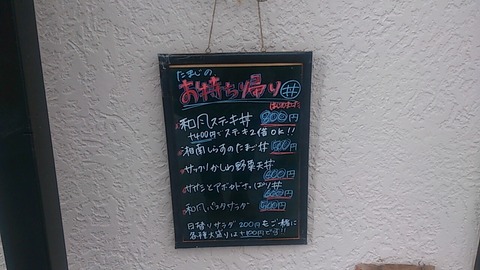 たまじの、
お持ち帰り丼
はじめました
和風ステーキ丼 800円
+400円でステーキ2倍OK!!
湘南しらすのたまご丼 600円
サックリかしわ野菜天丼
600円
ササミとアボカドサッぱり丼
600円
和風パスタサラダ 500円
日替りサラダ200円もご一緒に
各種大盛りは+100円です!!